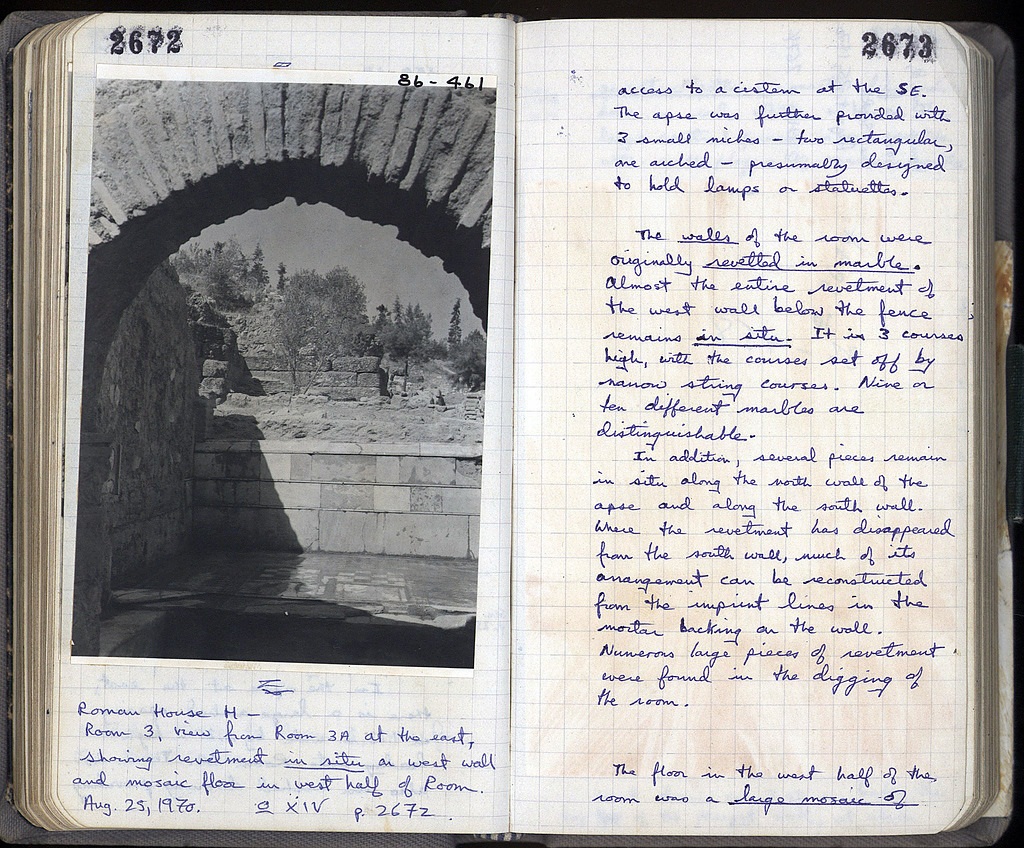 2672
86-461
Roman House H —
Room 3, view from Room 3A at the east,
showing revetment in situ on west wall
and mosaic floor in west half of Room.
Aug. 25, 1970. O XIV p. 2672.
2673
access to a cistern at the SE.
The apse was further provided with
3 small niches – two rectangular,
one arched – presumably designed
to hold lamps or statuettes.
The walls of the room were
originally revetted in marble.
Almost the entire revetment of
the west wall below the fence
remains in situ. It is 3 courses
high, with the courses set off by
narrow string courses. Nine or
ten different marbles are
distinguishable.
In addition, several pieces remain
in situ along the north wall of the
apse and along the south wall.
Where the revetment has disappeared
from the south wall, much of its
arrangement can be reconstructed
from the imprint lines in the
mortar backing on the wall.
Numerous large pieces of revetment
were found in the digging of
the room.
The floor in the west half of the
room was a large mosaic of